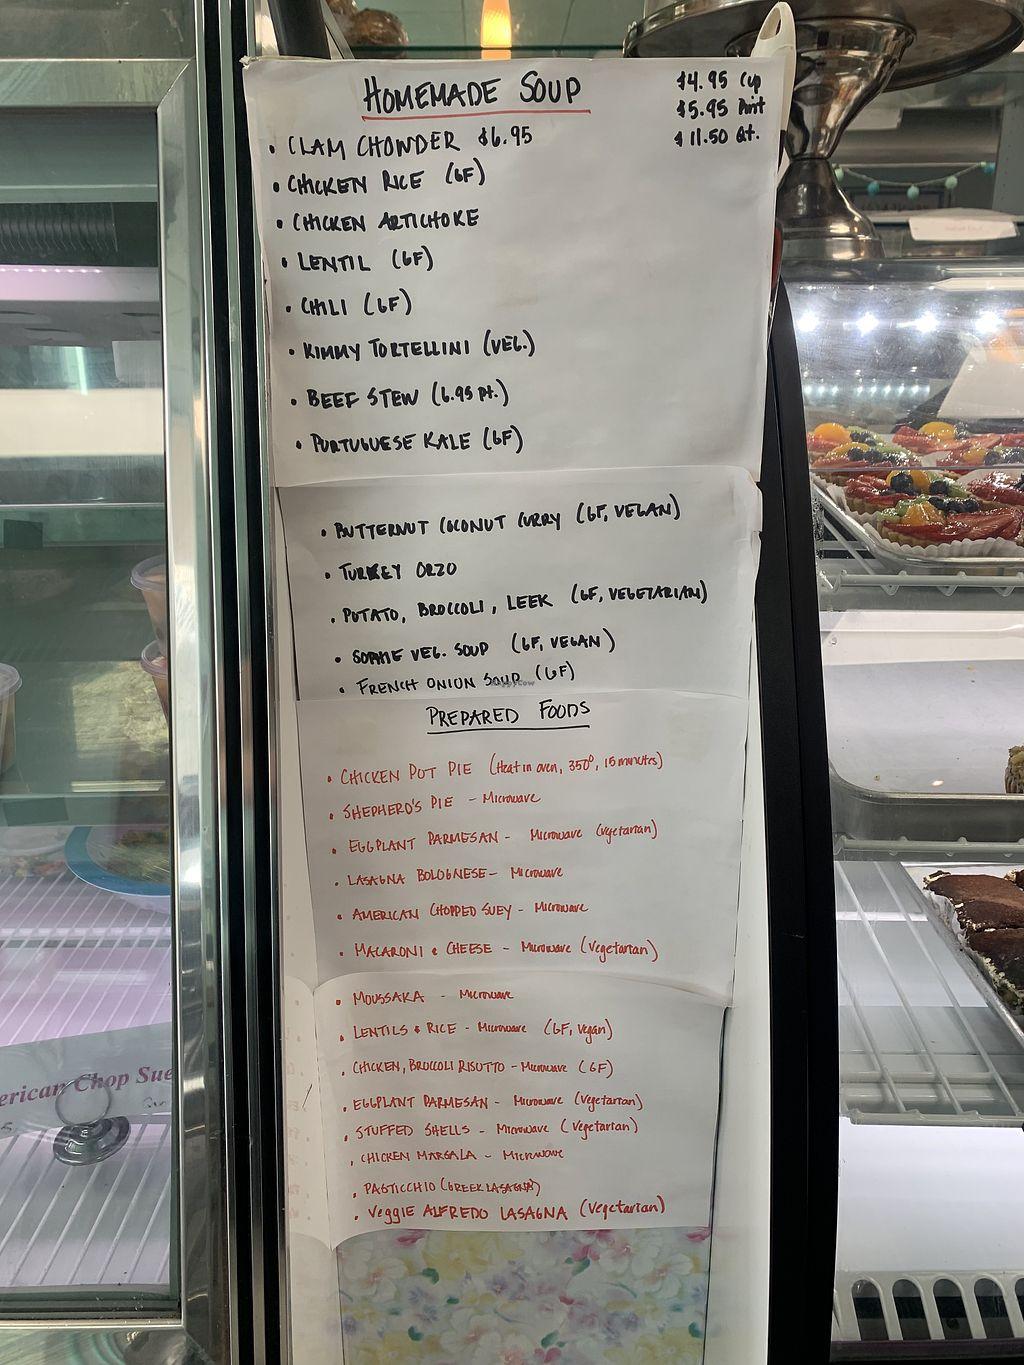 HOMEMADE SOUP
$4.95 Cup
$5.95 Pint
$11.50 Qt.
• CLAM CHOWDER $6.95
• CHICKEN RICE (GF)
• CHICKEN ARTICHOKE
• LENTIL (GF)
• CHILI (GF)
• KIMMY TORTELLINI (VEG.)
• BEEF STEW (6.95 Pt.)
• PORTUGUESE KALE (GF)
• BUTTERNUT COCONUT CURRY (GF, VEGAN)
• TURKEY ORZO
• POTATO, BROCCOLI, LEEK (GF, VEGETARIAN)
• SOPHIE VEG. SOUP (GF, VEGAN)
• FRENCH ONION SOUP (GF)
HappyCow
PREPARED FOODS
• CHICKEN POT PIE (Heat in oven, 350°, 15 minutes)
• SHEPHERD'S PIE - Microwave
• EGGPLANT PARMESAN - Microwave (vegetarian)
• LASAGNA BOLOGNESE - Microwave
• AMERICAN CHOPPED SUEY - Microwave
• MACARONI & CHEESE - Microwave (Vegetarian)
• MOUSSAKA - Microwave
• LENTILS & RICE - Microwave (GF, Vegan)
• CHICKEN, BROCCOLI RISOTTO - Microwave (GF)
• EGGPLANT PARMESAN - Microwave (Vegetarian)
• STUFFED SHELLS - Microwave (Vegetarian)
• CHICKEN MARSALA - Microwave
• PASTICCHIO (GREEK LASAGNA)
• Veggie ALFREDO LASAGNA (Vegetarian)
erican Chop Sue